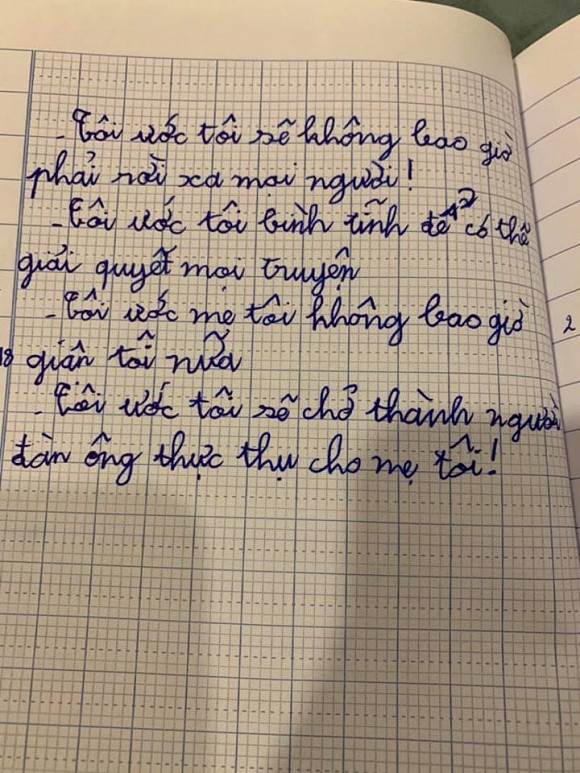 - Tôi ước tôi sẽ không bao giờ
phải rời xa mọi người!
- Tôi ước tôi bình tĩnh để có thể
giải quyết mọi truyện
- Tôi ước mẹ tôi không bao giờ
giận tôi nữa
- Tôi ước tôi sẽ chở thành người
đàn ông thực thụ cho mẹ tôi!